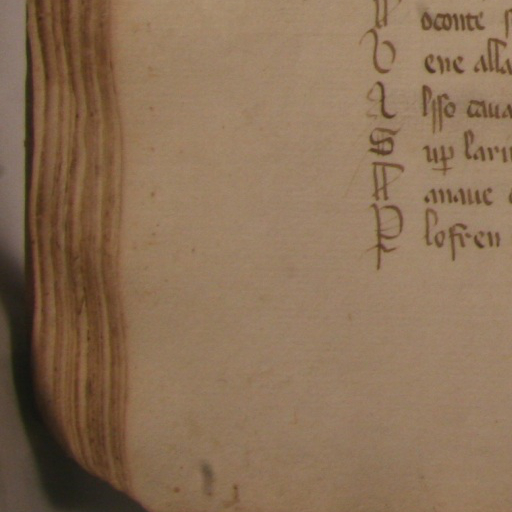 oconte
V ene alla
A lisse caua
S up lari
F anaue
P lofren